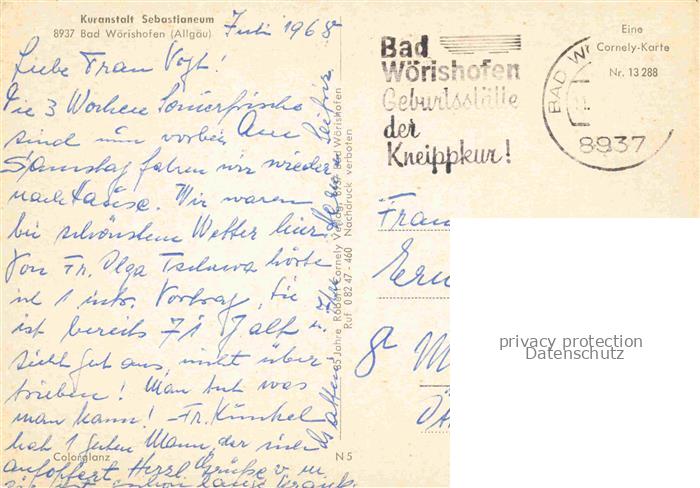 Kuranstalt Sebastianeum
8937 Bad Wörishofen (Allgäu)
Juli 1968
Liebe Frau Vogt!
Die 3 Wochen Sommerfrische
sind nun vorbei. Am
Samstag fahren wir wieder
nach Hause. Wir waren
bei schönstem Wetter hier.
Von Fr. Olga Tschawa hörte
ich 1 intr. Vortrag. Sie
ist bereits 71 J alt u.
sieht gut aus, nicht über
trieben! Man tut was
man kann! Fr. Künkel
hat 1 guten Mann, der sich
aufopfert. Herzl Grüße v. m
sie ist schon lange krank.
Colorglanz
N 5
85 Jahre Robert Cornely Verlag, 8937 Bad Wörishofen
Ruf 0 82 47 - 460 Nachdruck verboten
Bad
Wörishofen
Geburtsstätte
der
Kneippkur!
BAD W
8937
Eine
Cornely-Karte
Nr. 13 288
Frau
8
M
privacy protection
Datenschutz